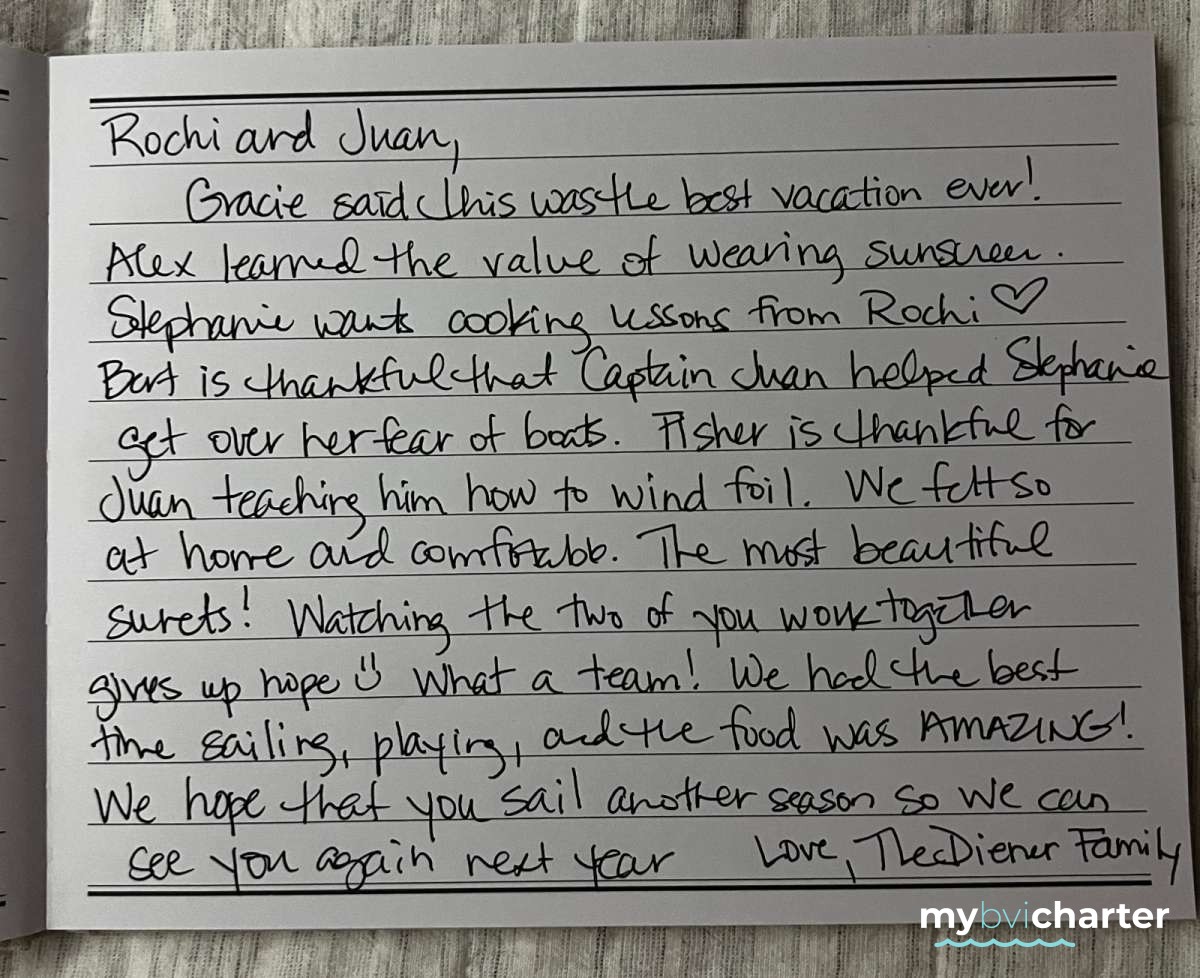 Rochi and Juan,
Gracie said this was the best vacation ever!
Alex learned the value of wearing sunscreen.
Stephanie wants cooking lessons from Rochi ♡
Bert is thankful that Captain Juan helped Stephanie
get over her fear of boats. Fisher is thankful for
Juan teaching him how to wind foil. We felt so
at home and comfortable. The most beautiful
sunsets! Watching the two of you work together
gives up hope :) What a team! We had the best
time sailing, playing, and the food was AMAZING!
We hope that you sail another season so we can
see you again next year Love, The Diener Family
mybvicharter